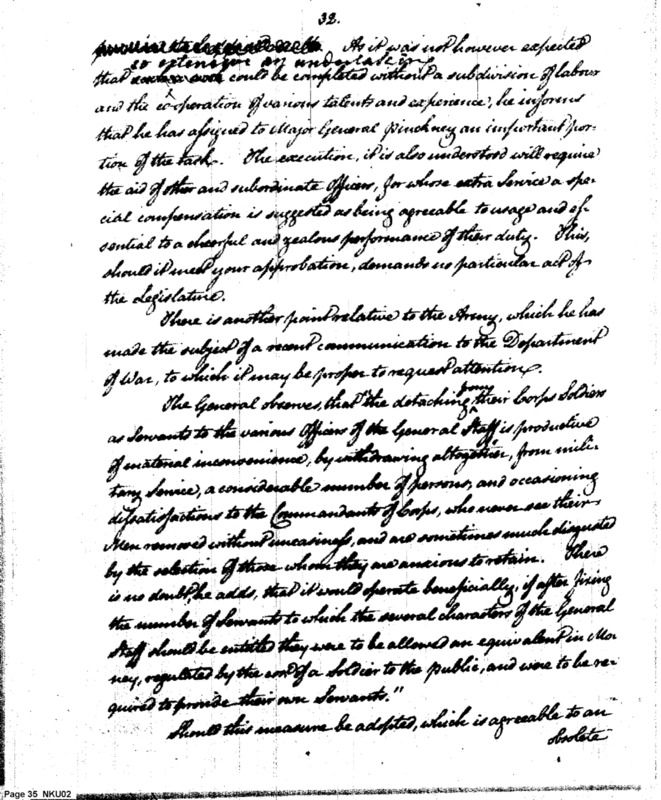 32.
As it was not however expected
so extensive an undertaking
that could be completed without a subdivision of labour
and the co-operation of various talents and experience, he informs
that he has assigned to Major General Pinckney an important por-
tion of the task. The execution, it is also understood will require
the aid of other and subordinate Officers, for whose extra Service a spe-
cial compensation is suggested as being agreeable to usage and es-
sential to a cheerful and zealous performance of their duty. This,
should it meet your approbation, demands no particular act of
the Legislature.
There is another point relative to the Army, which he has
made the subject of a recent communication to the Department
of War, to which it may be proper to request attention.
from
The General observes, that "the detaching their Corps Soldiers
as Servants to the various Officers of the General Staff is productive
of material inconvenience, by withdrawing altogether, from mili-
tary Service, a considerable number of persons, and occasioning
dissatisfactions to the Commandants of Corps, who never see their
Men removed without uneasiness, and are sometimes much disgusted
by the selection of those whom they are anxious to retain. There
is no doubt, he adds, that it would operate beneficially; if after fixing
the number of Servants to which the several characters of the General
Staff should be entitled they were to be allowed an equivalent in Mo-
ney, regulated by the cost of a Soldier to the public, and were to be re-
quired to provide their own Servants."
Should this measure be adopted, which is agreeable to an
obsolete
Page 35 NKU02